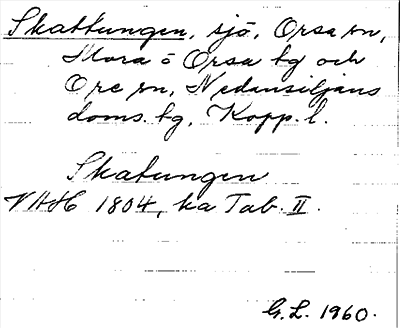 Skattungen, sjö, Orsa sn,
Mora o Orsa tg och
Ore sn, Nedansiljans
doms. tg, Kopp. l.
Skatungen
VHAH 1804, ka Tab. II.
G. L. 1960.